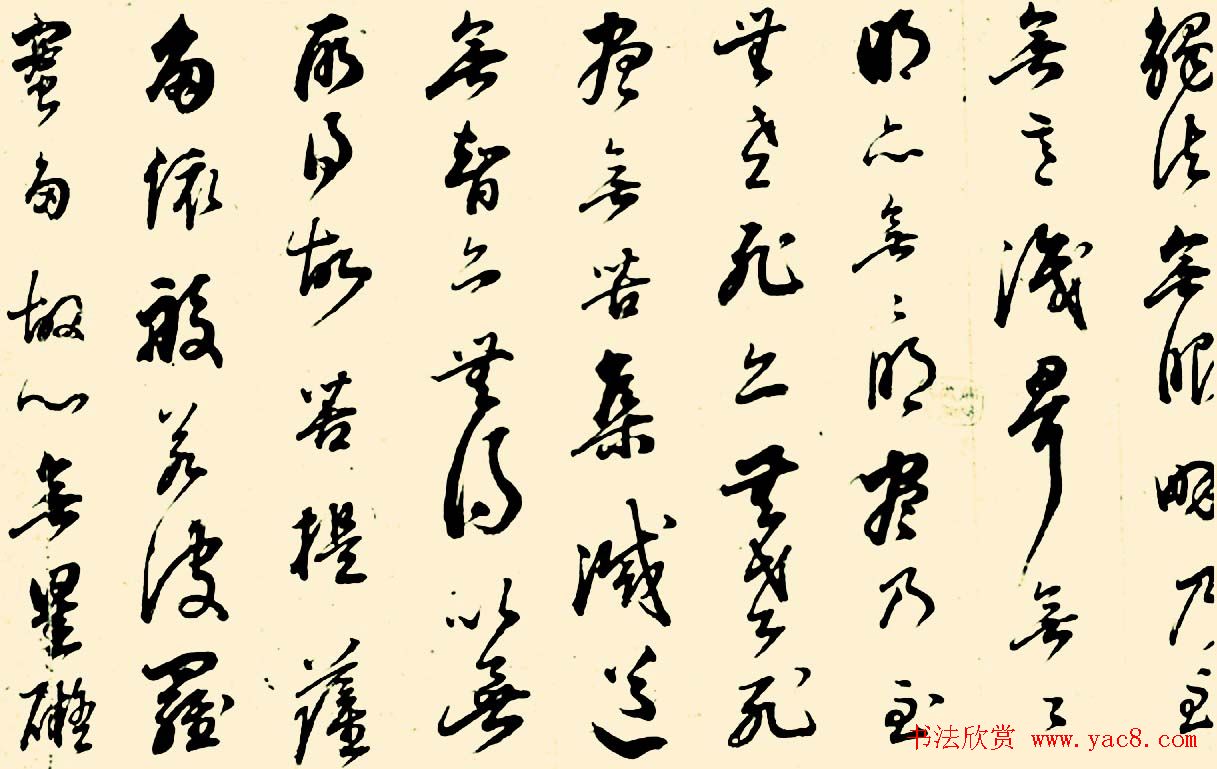 觸法無眼界乃至
無意識界無〻
明亦無〻明盡乃至
無老死亦無老死
盡無苦集滅道
無智亦無得以無
所得故菩提薩
埵依般若波羅
蜜多故心無罣礙
书法欣赏 www.yac8.com